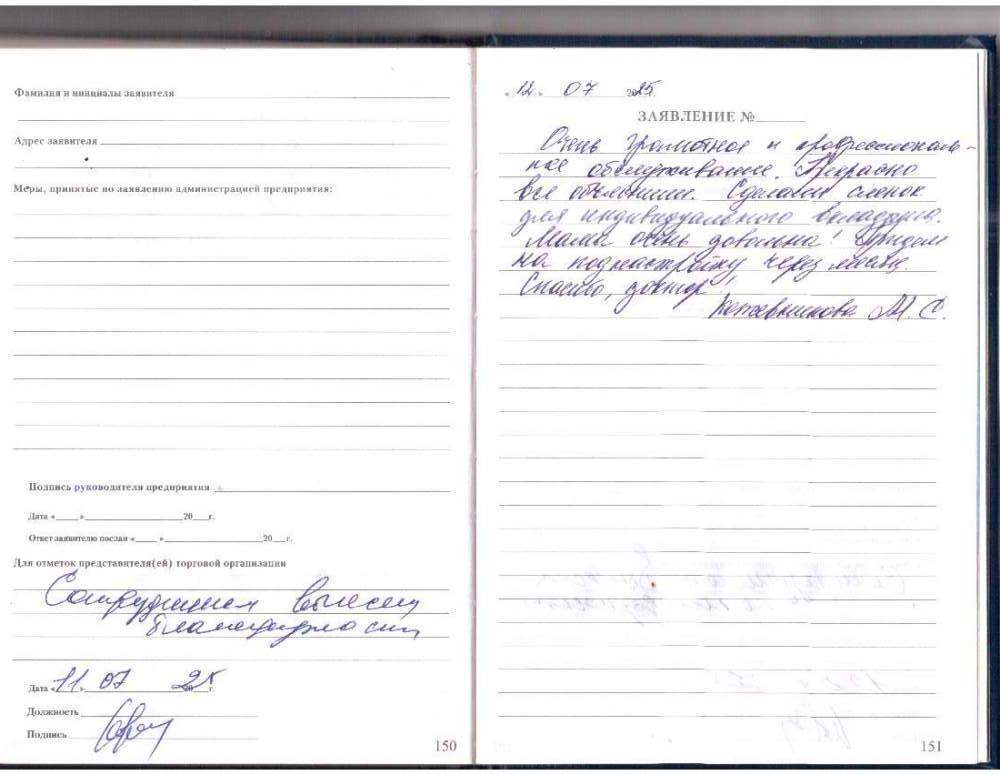 Фамилия и инициалы заявителя
Адрес заявителя
Меры, принятые по заявлению администрацией предприятия:
Подпись руководителя предприятия
Дата «___»______20__г.
Ответ заявителю послан «___»______20__г.
Для отметок представителя(ей) торговой организации
Сотрудникам вынесена
благодарность
Дата «11» 07 2025 г.
Должность
Подпись
150
«12» 07 2025.
ЗАЯВЛЕНИЕ №
Очень грамотное и профессиональ-
ное обслуживание. Прекрасно
все объяснили. Сделали слепок
для индивидуального вкладыша.
Мама очень довольна! Придем
на поднастройку через месяц.
Спасибо, доктор!
Кожевникова М. С.
151